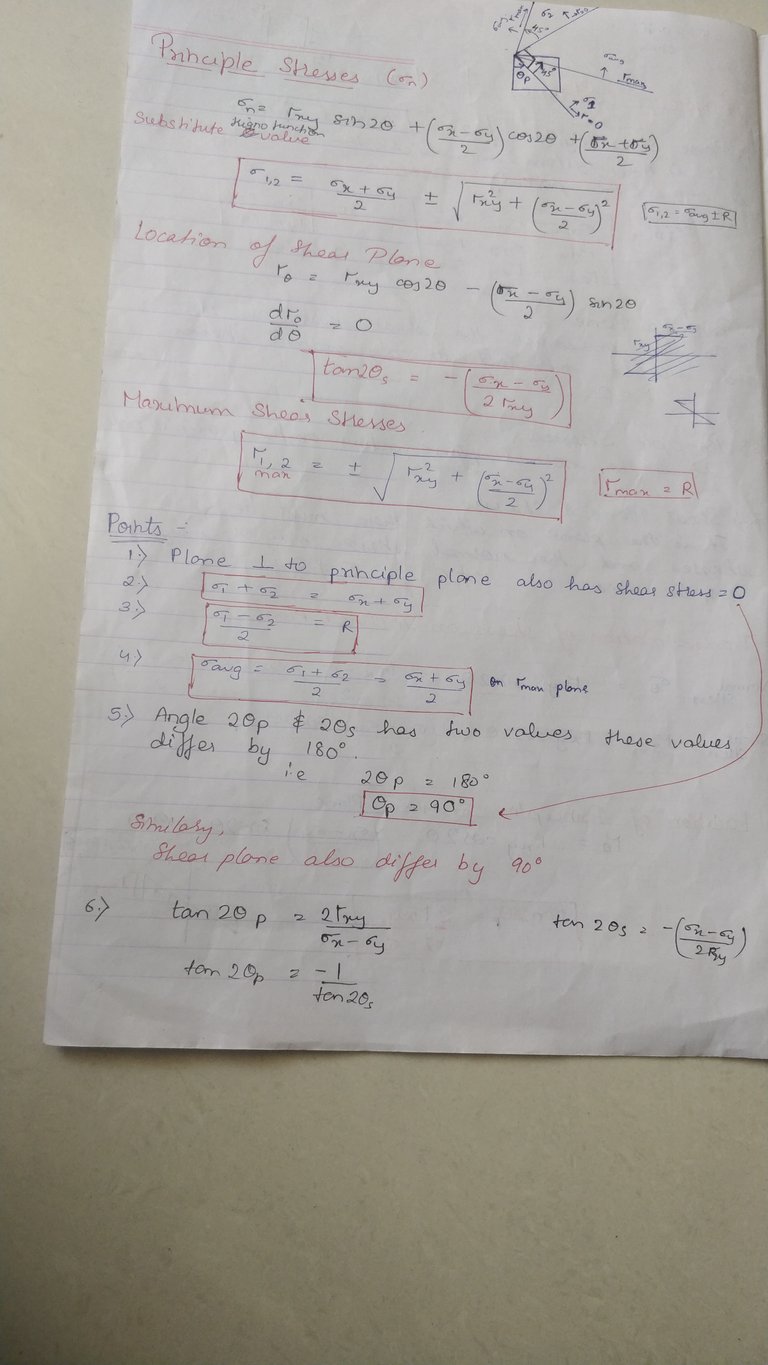 Principle Stresses (σn)
σn = τxy sin2θ + (σx-σy/2) cos2θ + (σx+σy/2)
Substitute trigno function
θ value
σ1,2 = σx+σy/2 ± √τ²xy + (σx-σy/2)²
σ1,2 = σavg ± R
Location of Shear Plane
τθ = τxy cos2θ - (σx-σy/2) sin2θ
dτθ/dθ = 0
τxy
σx-σy
tan2θs = -(σx-σy/2τxy)
Maximum Shear Stresses
τ1,2 max = ± √τ²xy + (σx-σy/2)²
τmax = R
Points -
1.) Plane ⊥ to principle plane also has shear stress = 0
2.) σ1 + σ2 = σx + σy
3.) σ1-σ2/2 = R
4.) σavg = σ1+σ2/2 = σx+σy/2 on τmax plane
5.) Angle 2θp & 2θs has two values these values
differ by 180°.
i.e 2θp = 180°
θp = 90°
Similary,
Shear plane also differ by 90°
6.) tan 2θp = 2τxy/σx-σy
tan 2θs = -(σx-σy/2τxy)
tan 2θp = -1/tan2θs
45°
45°
θp
σavg
τmax
τ=0